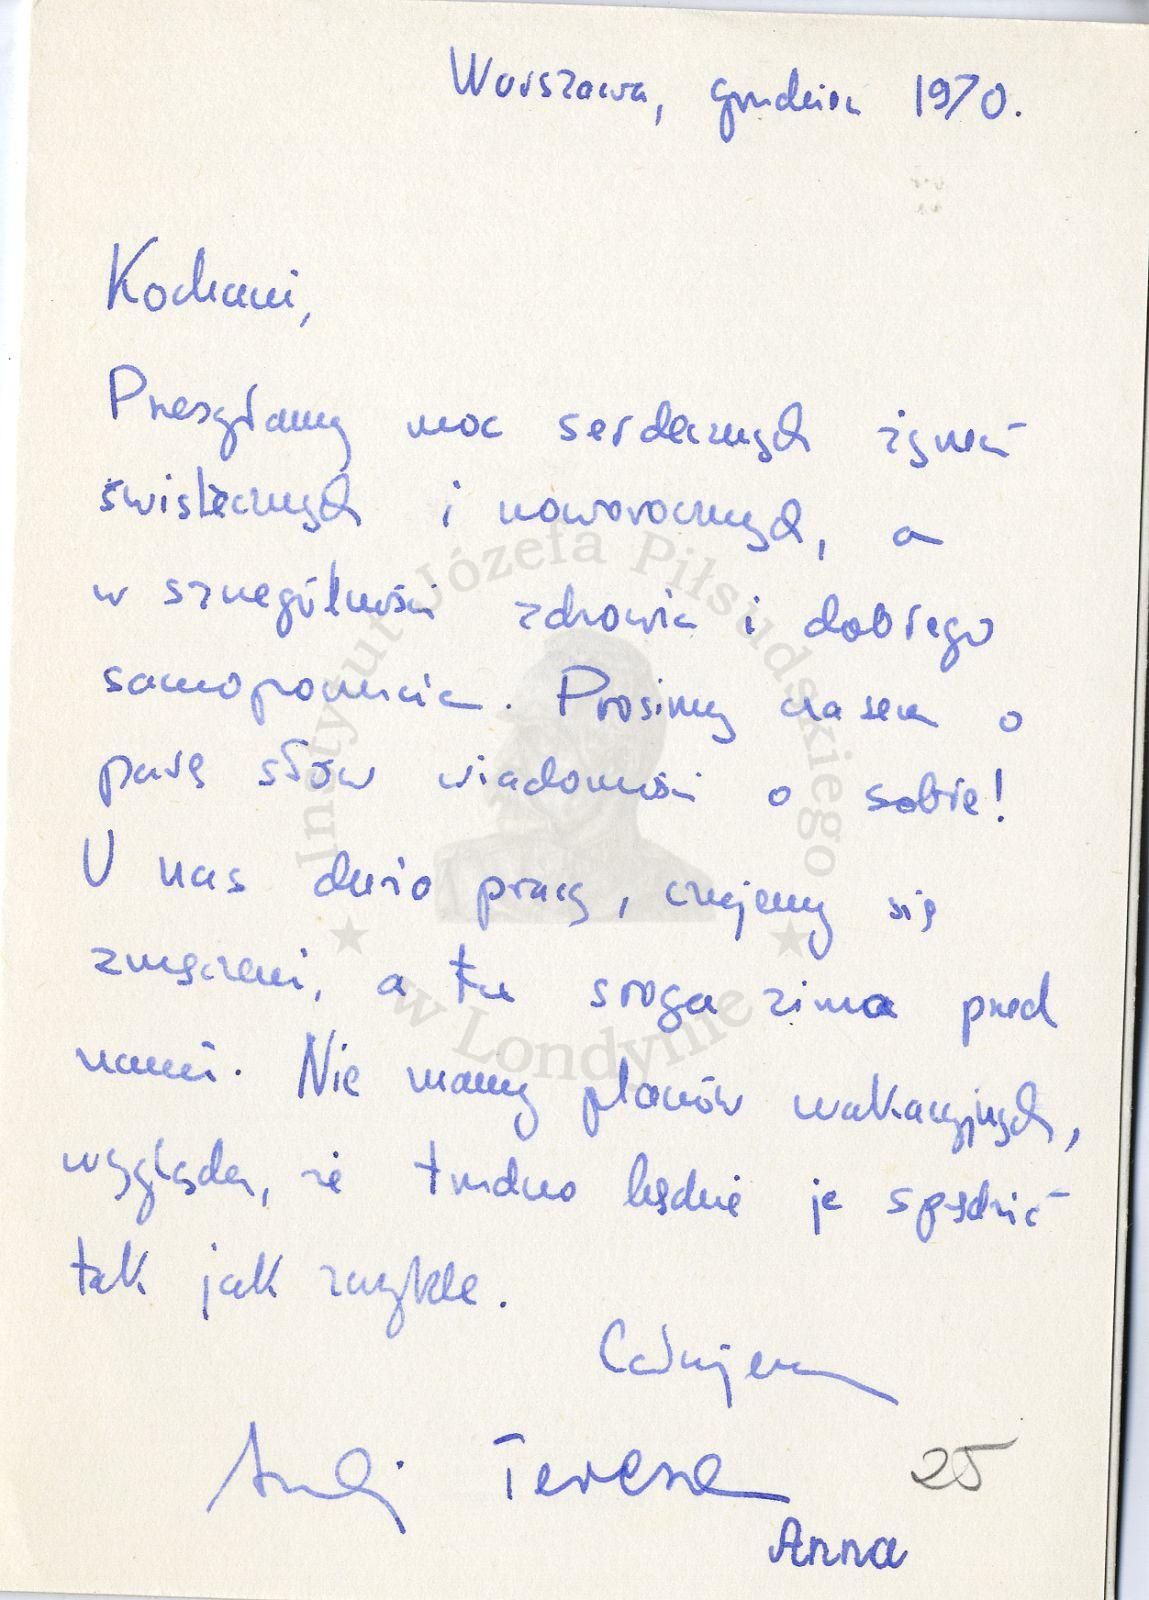 Warszawa, grudzień 1970.
Kochani,
Przesyłamy moc serdecznych życzeń
świątecznych i noworocznych, a
w szczególności zdrowia i dobrego
samopoczucia. Prosimy czasem o
parę słów wiadomości o sobie!
U nas dużo pracy, czujemy się
zmęczeni, a tu sroga zima przed
nami. Nie mamy planów wakacyjnych,
wygląda, że trudno będzie je spędzić
tak jak zwykle.
Całujemy
Andrzej Teresa 25
Anna
Instytut Józefa Piłsudskiego
w Londynie